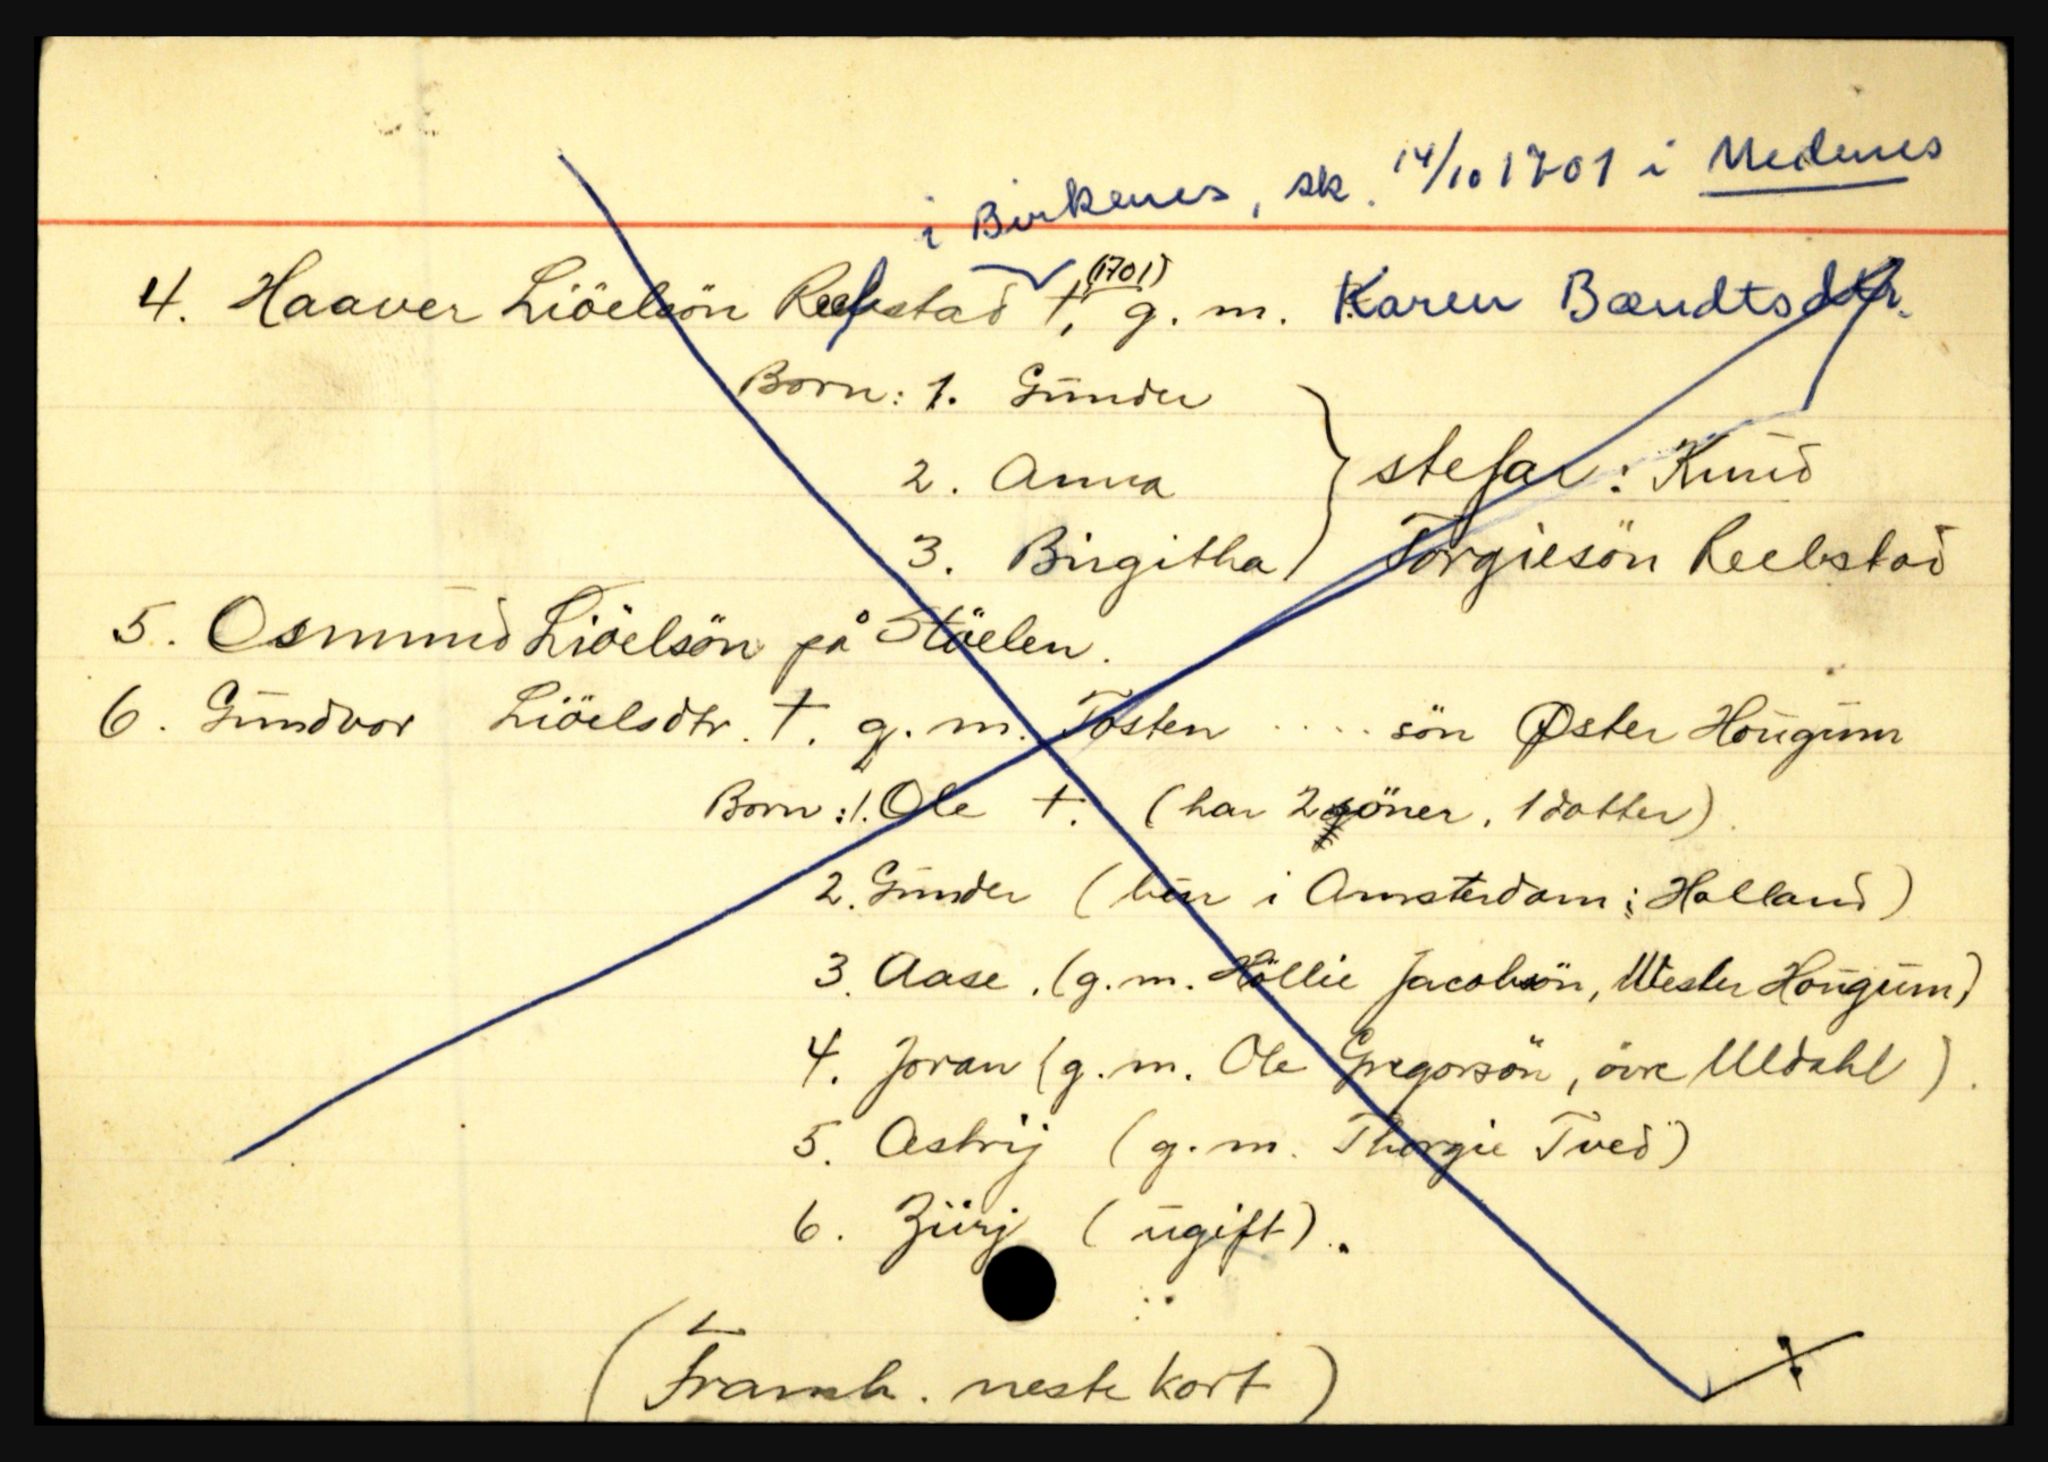 i Birkenes, sk. 14/10 1701 i Medenes
4. Haaver Liöelsön Reebstad †, (1701) g. m. Karen Bændtsdtr.
Born: 1. Gunder
2. Anna
3. Birgitha
stefar: Knud
Torgiesön Reebstad
5. Osmund Liöelsön på Stöelen.
6. Gundvor Liöelsdtr. †. g. m. Tosten .... sön Øster Hougum
Born: 1. Ole †. (har 2 söner, 1 datter).
2. Gunder (bur i Amsterdam i Holland)
3. Aase. (g. m. Höllie Jacobsön, Wester Hougum)
4. Joran (g. m. Ole Gregorsön, övre Uldahl).
5. Astrij (g. m. Thorgie Tved)
6. Zürj (ugift).
(Framh. neste kort)